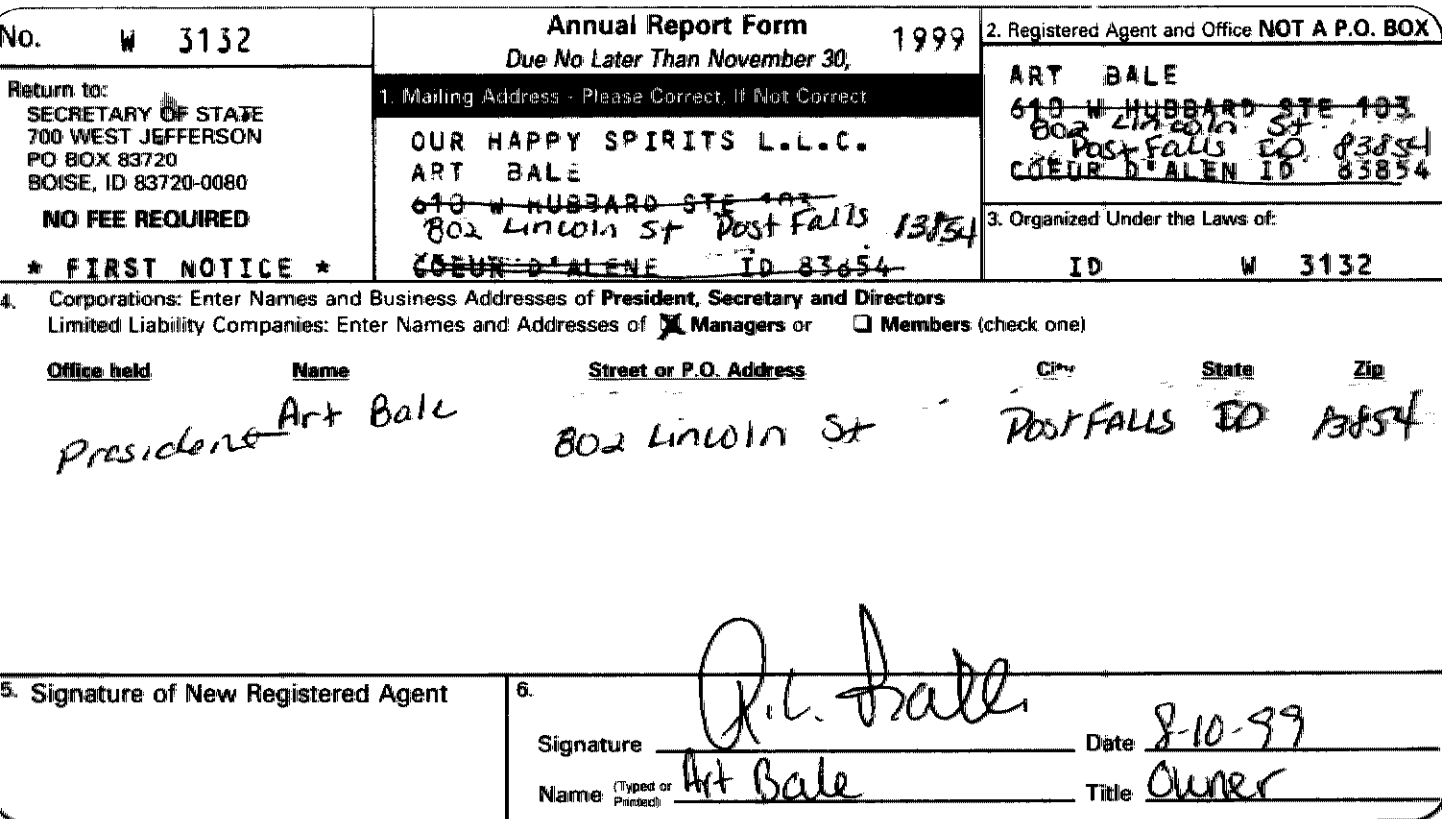 No. W 3132
Return to:
SECRETARY OF STATE
700 WEST JEFFERSON
PO BOX 83720
BOISE, ID 83720-0080
NO FEE REQUIRED
* FIRST NOTICE *
Annual Report Form 1999
Due No Later Than November 30,
1. Mailing Address - Please Correct, If Not Correct
OUR HAPPY SPIRITS L.L.C.
ART BALE
610 W HUBBARD STE 103
802 Lincoln St Post Falls 83854
COEUR D'ALENE ID 83854
2. Registered Agent and Office NOT A P.O. BOX
ART BALE
610 W HUBBARD STE 103
802 Lincoln St
Post Falls ID 83854
COEUR D'ALEN ID 83854
3. Organized Under the Laws of:
ID W 3132
4. Corporations: Enter Names and Business Addresses of President, Secretary and Directors
Limited Liability Companies: Enter Names and Addresses of Managers or Members (check one)
Office held Name Street or P.O. Address City State Zip
President Art Bale 802 Lincoln St Post FALLS ID 83854
5. Signature of New Registered Agent
6.
Signature Date 8-10-99
Name (Typed or Printed) Art Bale Title Owner